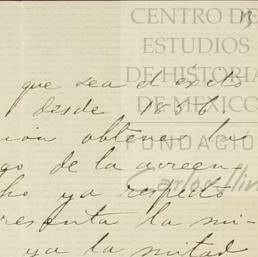 CENTRO DE
ESTUDIOS
DE HISTORIA
DE MÉXICO
FUNDACIÓ
Carlos Slim
13
que sea d éxito
desde 1886.
obtener la
go de la acreen-
ho ya respecto
resenta la mi-
ya la mitad